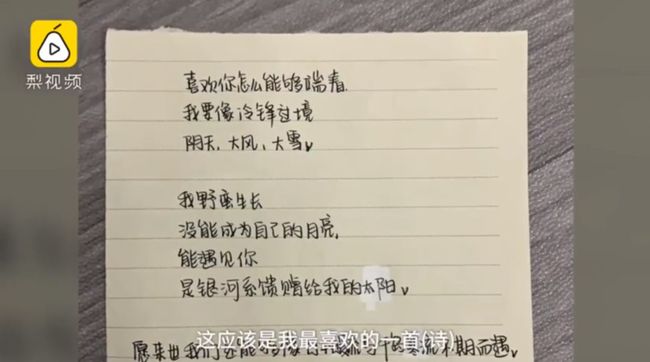 梨视频
喜欢你怎么能够喘着
我要像冷锋过境
阴天,大风,大雪。
我野蛮生长
没能成为自己的月亮,
能遇见你
是银河系馈赠给我的太阳。
愿来世我们还能
不期而遇。
这应该是我最喜欢的一首(诗)